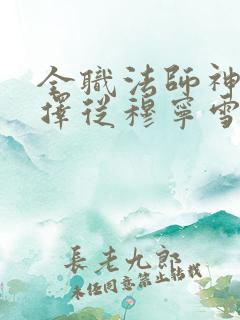 全職法師神
擇從穆寧雪
長老九郎
未经同意禁止转载